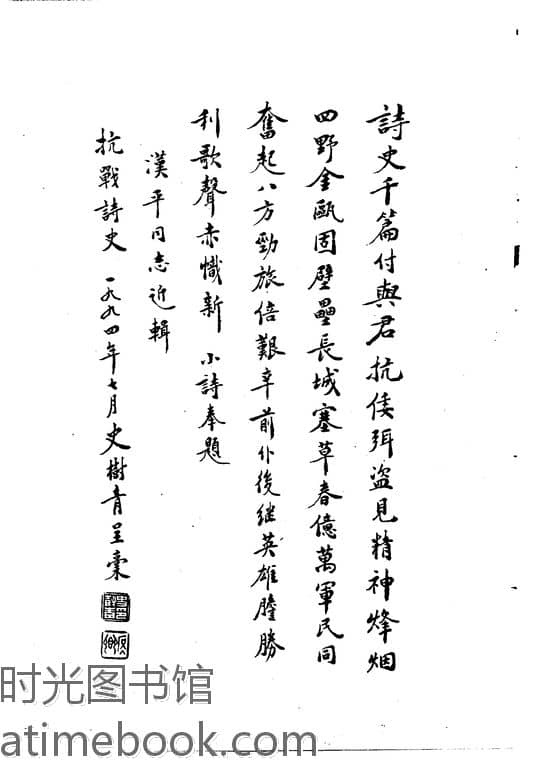 詩史千篇付與君抗倭弭盜見精神烽烟
四野金甌固壁壘長城塞草春億萬軍民同
奮起八方勁旅倍艱辛前仆後继英雄膽勝
利歌聲赤幟新 小詩奉題
漢平同志近輯
抗戰詩史 一九九四年七月史樹青呈稾
时光图书馆
atimebook.com